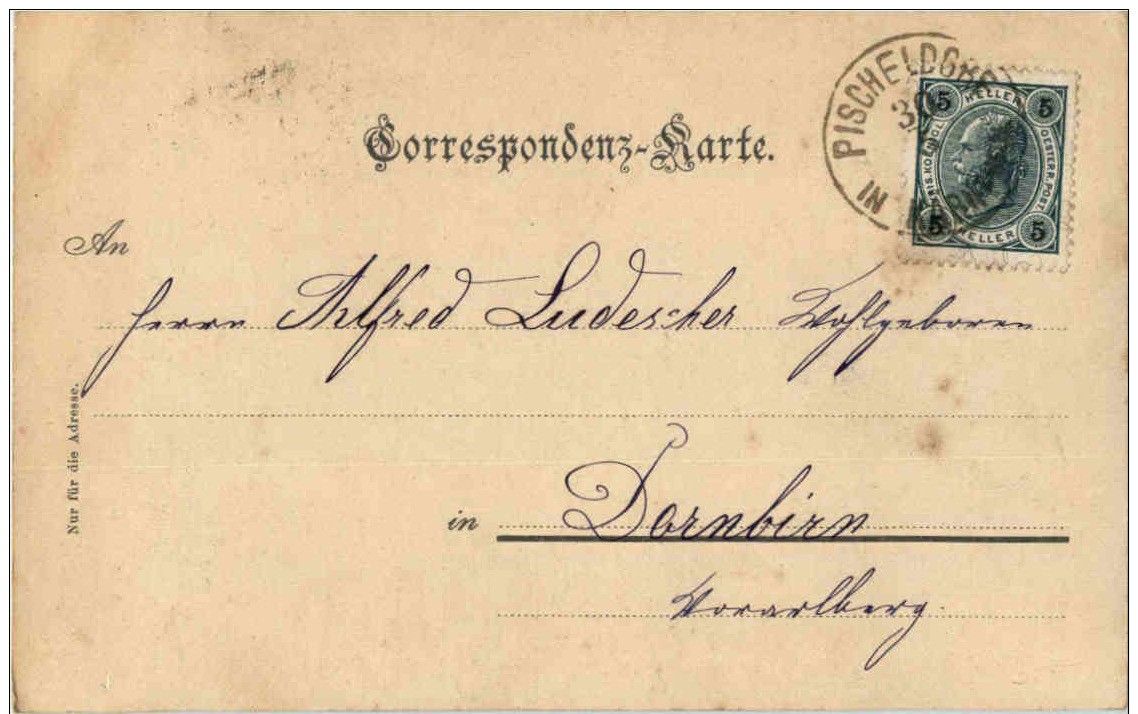 Correspondenz-Karte.
PISCHELDO
IN
30
5 HELLER 5
OESTERR. POST.
5 HELLER 5
An
Herrn Alfred Ludescher Wohlgeboren
in Dornbirn
Vorarlberg.
Nur für die Adresse.